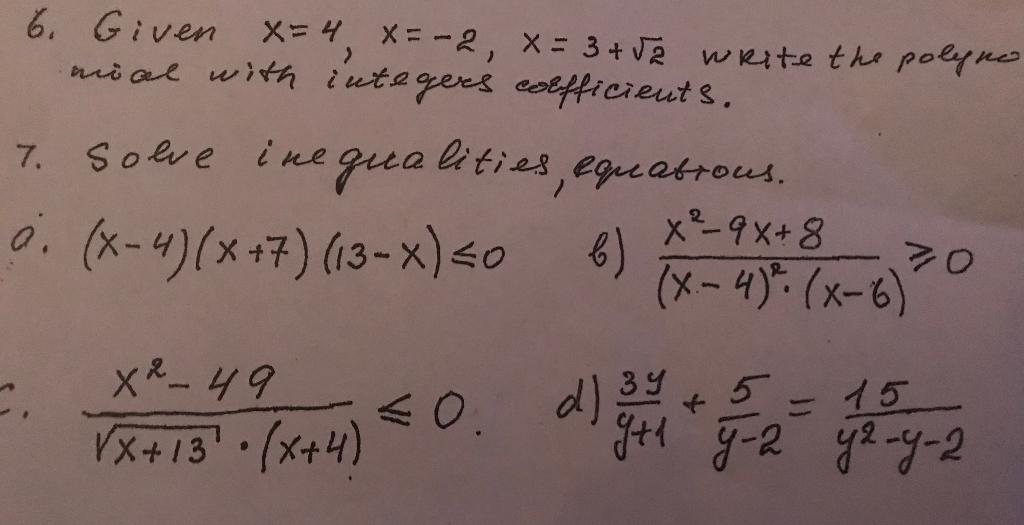 6. Given x=4, x=-2, x=3+√2 write the polyno
mial with integers coefficients.
7. Solve inequalities, equations.
a. (x-4)(x+7)(13-x)≤0 b) (x²-9x+8)/((x-4)²·(x-6)) ≥0
c. (x²-49)/(√(x+13)·(x+4)) ≤ 0. d) 3y/(y+1) + 5/(y-2) = 15/(y²-y-2)